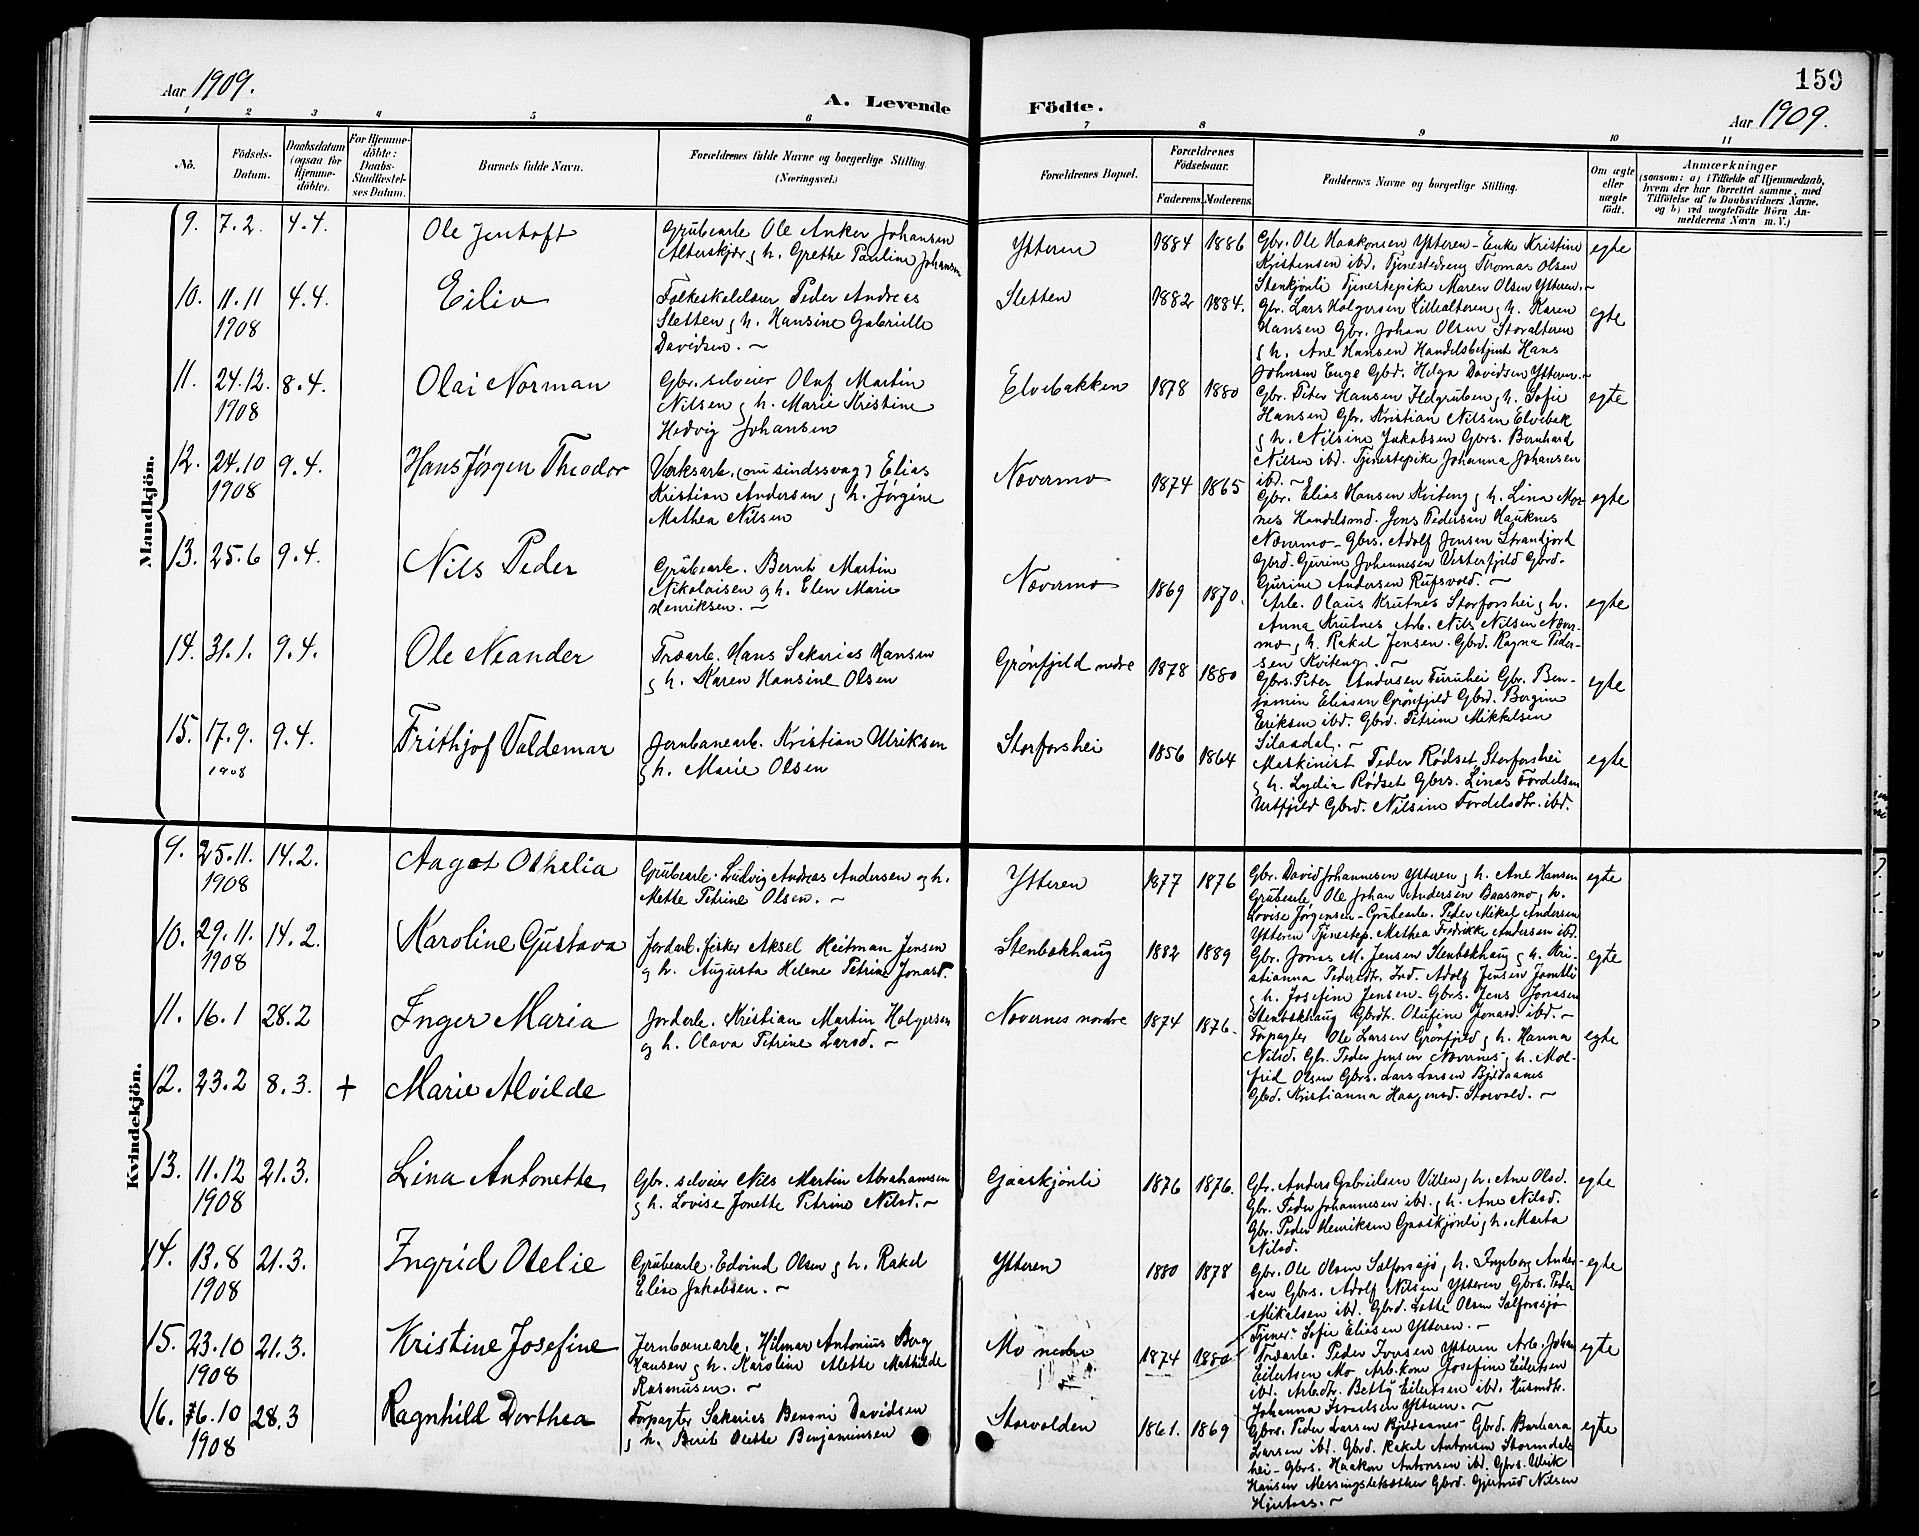 Aar 1909.
A. Levende Födte.
159
Aar 1909.
1 2 3 4 5 6 7 8 9 10 11
No. Födsels-Datum. Daabsdatum (ogsaa for Hjemme-döbte). For Hjemme-döbte: Daabs-Stadfæstel-ses Datum. Barnets fulde Navn. Forældrenes fulde Navne og borgerlige Stilling. (Næringsvei.) Forældrenes Bopæl. Forældrenes Födselsaar. Faderens Moderens Faddernes Navne og borgerlige Stilling. Om ægte eller uægte födt. Anmærkninger
(saasom: a) i Tilfælde af Hjemmedaab,
hvem der har forrettet samme, med
Tilföielse af to Daabsvidners Navne.
og b) ved uægtefödte Börn An-
melderens Navn m. V.)
Mandkjön.
9. 7.2. 4.4. Ole Jentoft
Grubearb. Ole Anker Johansen
Alterskjær og h. Grethe Pauline Johansen
Ytteren 1884 1886
Gbr. Ole Haakonsen Ytteren - Enke Kristine
Kristensen ibd. Tjenestedreng Thomas Olsen
Stenkjönli Tjenestepike Maren Olsen Ytteren. egte
10. 11.11 1908 4.4. Eiliv
Folkeskolelærer Peder Andreas
Sletten og h. Hansine Gabrielle
Davidsen.
Sletten 1882 1884.
Gbr. Lars Holgersen Lillealteren og h. Karen
Hansen Gbr. Johan Olsen Storalteren
og h. Ane Hansen Handelsbetjent Hans
Johnsen Enge Gbd. Helga Davidsen Ytteren. egte
11. 24.12. 1908 8.4. Olai Norman
Gbr. selveier Oluf Martin
Nilsen og h. Marie Kristine
Hedvig Johansen
Elvebakken 1878 1880
Gbr. Peter Hansen Ildgruben og h. Sofie
Hansen Gbr. Kristian Nilsen Elvebak
og h. Nilsine Jakobsen Gbrs. Bernhard
Nilsen ibd. Tjenestepike Johanna Johansen
ibd. egte
12. 24.10 1908 9.4. Hans Jørgen Theodor
Verksarb. (nu sindssvag) Elias
Kristian Andersen og h. Jørgine
Mathea Nilsen
Nævermo 1874 1865
Gbr. Elias Hansen Kviteng og h. Lina Mor-
nes Handelsmd. Jens Pedersen Hauknes
Nævermo - Gbrs. Adolf Jensen Strandjord
Gbrd. Gurine Johannesen Vesterfjeld Gbrd.
Gurine Andersen Rufsvold. egte
13. 25.6 9.4. Nils Peder
Grubearb. Bernt Martin
Nikolaisen og h. Elen Marie
Henriksen.
Nævermo 1869 1870.
Arb. Olaus Krutnes Storforshei og h.
Anna Krutnes Arb. Nils Nilsen Næver-
mo og h. Rakel Jensen. Gbrd. Ragna Peder-
sen Kviteng. egte
14. 31.1. 9.4. Ole Neander
Træarb. Hans Sakarias Hansen
og h. Karen Hansine Olsen
Grönfjeld nedre 1878 1880
Gbrs. Peter Andersen Furuhei Gbr. Ben-
jamin Eliasen Grönfjeld Gbrd. Bergine
Eriksen ibd. Gbrd. Petrine Mikkelsen
Silaadal. egte
15. 17.9. 1908 9.4. Frithjof Valdemar
Jernbanearb. Kristian Ulriksen
og h. Marie Olsen
Storforshei 1856 1864
Maskinist Peder Rödset Storforshei
og h. Lydia Rödset Gbrs. Linas Fordelsen
Urtfjeld Gbrd. Nilsine Fordelsdtr. ibd. egte
Kvindekjön.
9. 25.11. 1908 14.2. Aagot Othelia
Grubearb. Ludvig Andreas Andersen og h.
Mette Petrine Olsen.
Ytteren 1877 1876
Gbr. David Johannesen Ytteren og h. Ane Hansen
Grubearb. Ole Johan Andersen Baasmo og h.
Lovise Jørgensen - Grubearb. Peder Mikal Andersen
Ytteren Tjenestep. Mathea Fredrikke Andersen ibd. egte
10. 29.11. 1908 14.2. Karoline Gustava
Jordarb. fisker Aksel Heitman Jensen
og h. Augusta Helene Petrine Jonasd.
Stenbækhaug 1882 1889
Gbr. Jonas M. Jensen Stenbækhaug og h. Kri-
stianna Pedersdtr. Ind. Adolf Jensen Jamtli
og h. Josefine Jensen - Gbrs. Jens Jonassen
Stenbækhaug Gbrdtr. Olufine Jonasd. ibd. egte
11. 16.1 28.2 Inger Maria
Jordarb. Kristian Martin Holgersen
og h. Olava Petrine Larsd.
Nævernes nordre 1874 1876.
Forpagter Ole Larsen Grönfjeld og h. Hanna
Nilsd. Gbr. Peder Jensen Nævernes og h. Mol-
frid Olsen Gbrs. Lars Larsen Bjeldaanes
Gbd. Kristianna Haagensd. Storvold. egte
12. 23.2 8.3. + Marie Alvilde
13. 11.12 1908 21.3. Lina Antonette
Gbr. selveier Nils Martin Abrahamsen
og h. Lovise Jonette Petrine Nilsd.
Gaaskjönli 1876 1876.
Gbr. Anders Gabrielsen Villen og h. Ane Olsd.
Gbr. Peder Johannesen ibd. og h. Ane Nilsd.
Gbr. Peder Henriksen Gaaskjönli og h. Marta
Nilsd. egte
14. 13.8 1908 21.3. Ingrid Otelie
Grubearb. Edvind Olsen og h. Rakel
Elise Jakobsen.
Ytteren 1880 1878
Gbr. Ole Olsen Sælforssjö og h. Ingeborg Ander-
sen Gbrs. Adolf Nilsen Ytteren Gbrs. Peder
Mikelsen ibd. Gbrd. Lotte Olsen Sælforssjö
Tjener Sofie Eliasen Ytteren. egte
15. 23.10 1908 21.3. Kristine Josefine
Jernbanearb. Hilmar Antonius Berg
Hansen og h. Karoline Alette Mathilde
Rasmusen.
Mo nedre 1874 1880
Træarb. Peder Ivarsen Ytteren Arb. Johan
Eilertsen Mo Arb.kone Josefine Eilertsen
ibd. Arb.dtr. Betty Eilertsen ibd. Husmdtr.
Johanna Israelsen Ytteren. egte
16. 6.10 1908 28.3 Ragnhild Dorthea
Forpagter Sakarias Benoni Davidsen
og h. Berit Olette Benjaminsen
Storvolden 1861. 1869
Gbrs. Peder Larsen Bjeldaanes Gbrd. Barbara
Larsen ibd. Gbrd. Rakel Antonsen Stormdals-
hei - Gbrs. Haakon Antonsen ibd. Gbrs. Ulrik
Hansen Messingsletsæther Gbrd. Gjertrud Nilsen
Hjertaas. egte